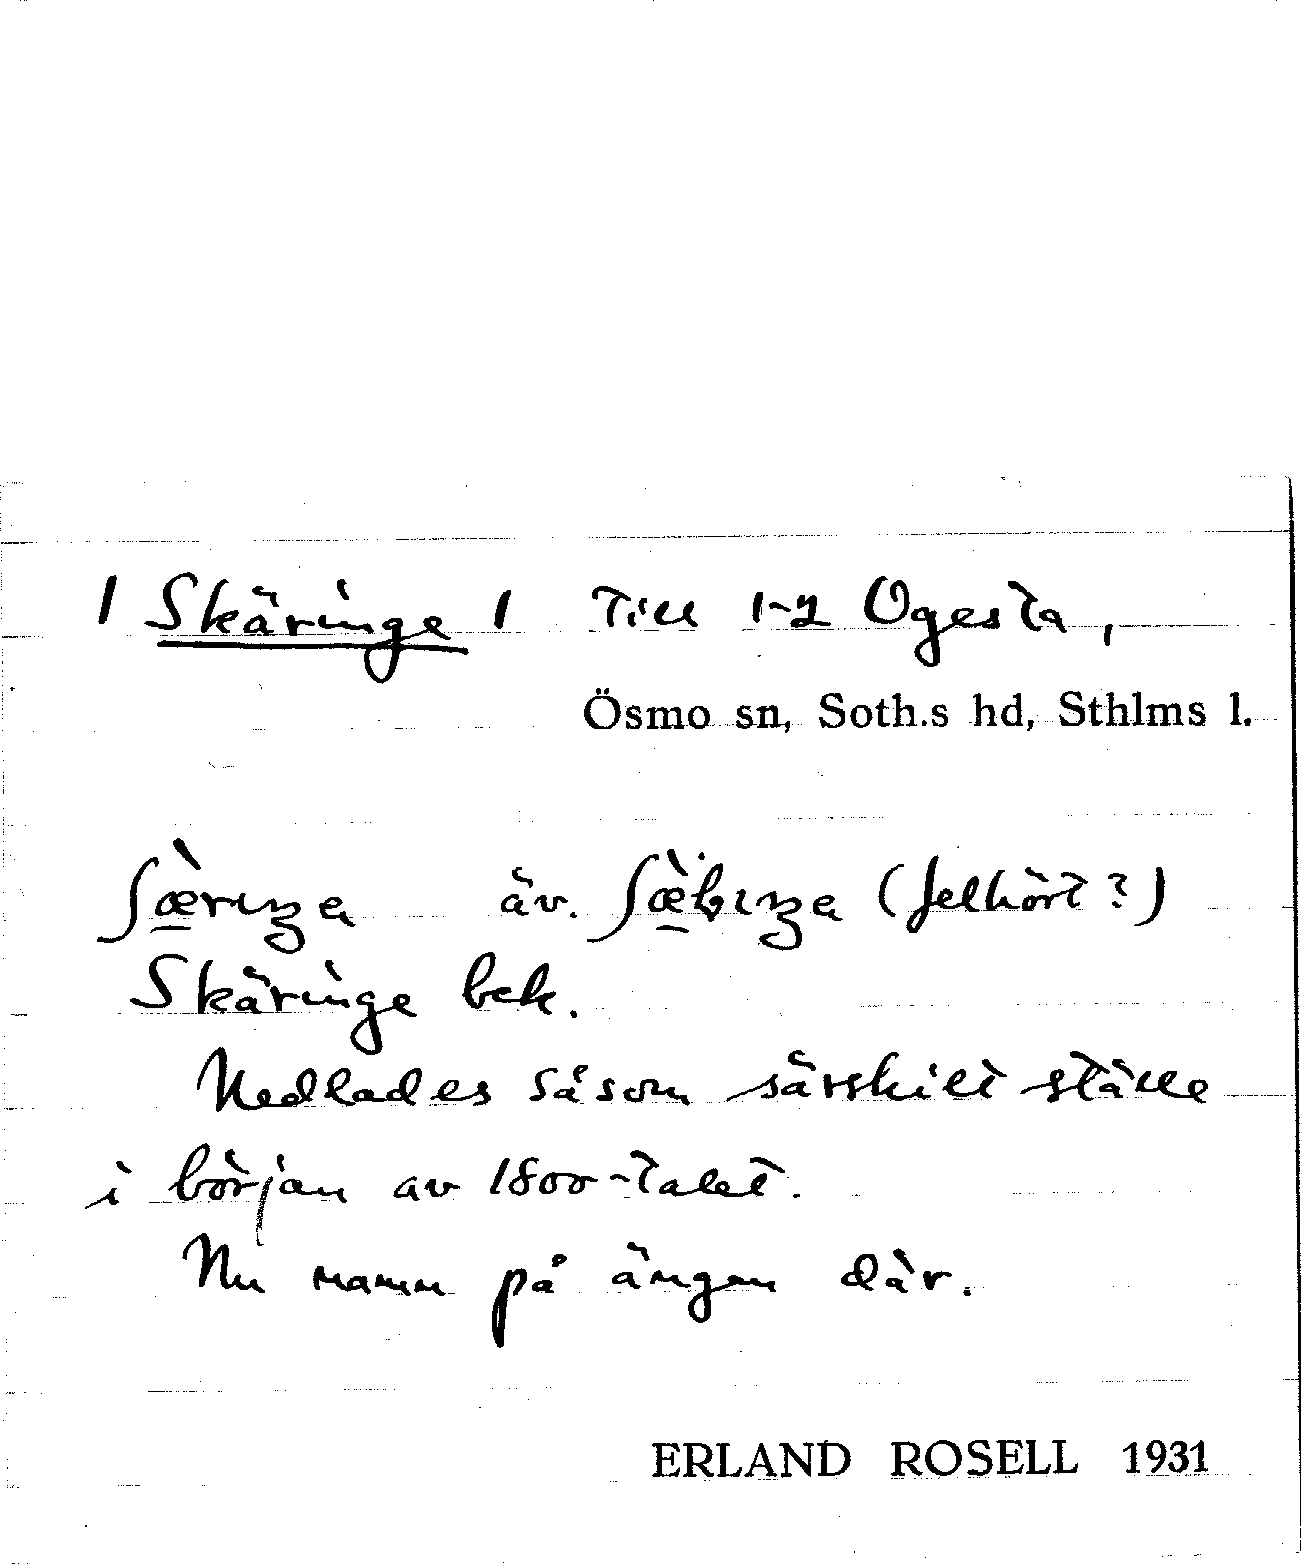 / Skäringe / Till 1-2 Ogesta,
Ösmo sn, Soth.s hd, Sthlms l.
ʃæ̀rɩŋe äv. ʃæ̀bɩŋe (felhört?)
Skäringe bek.
Nedlades såsom särskilt ställe
i början av 1800-talet.
Nu namn på ängen där.
ERLAND ROSELL 1931